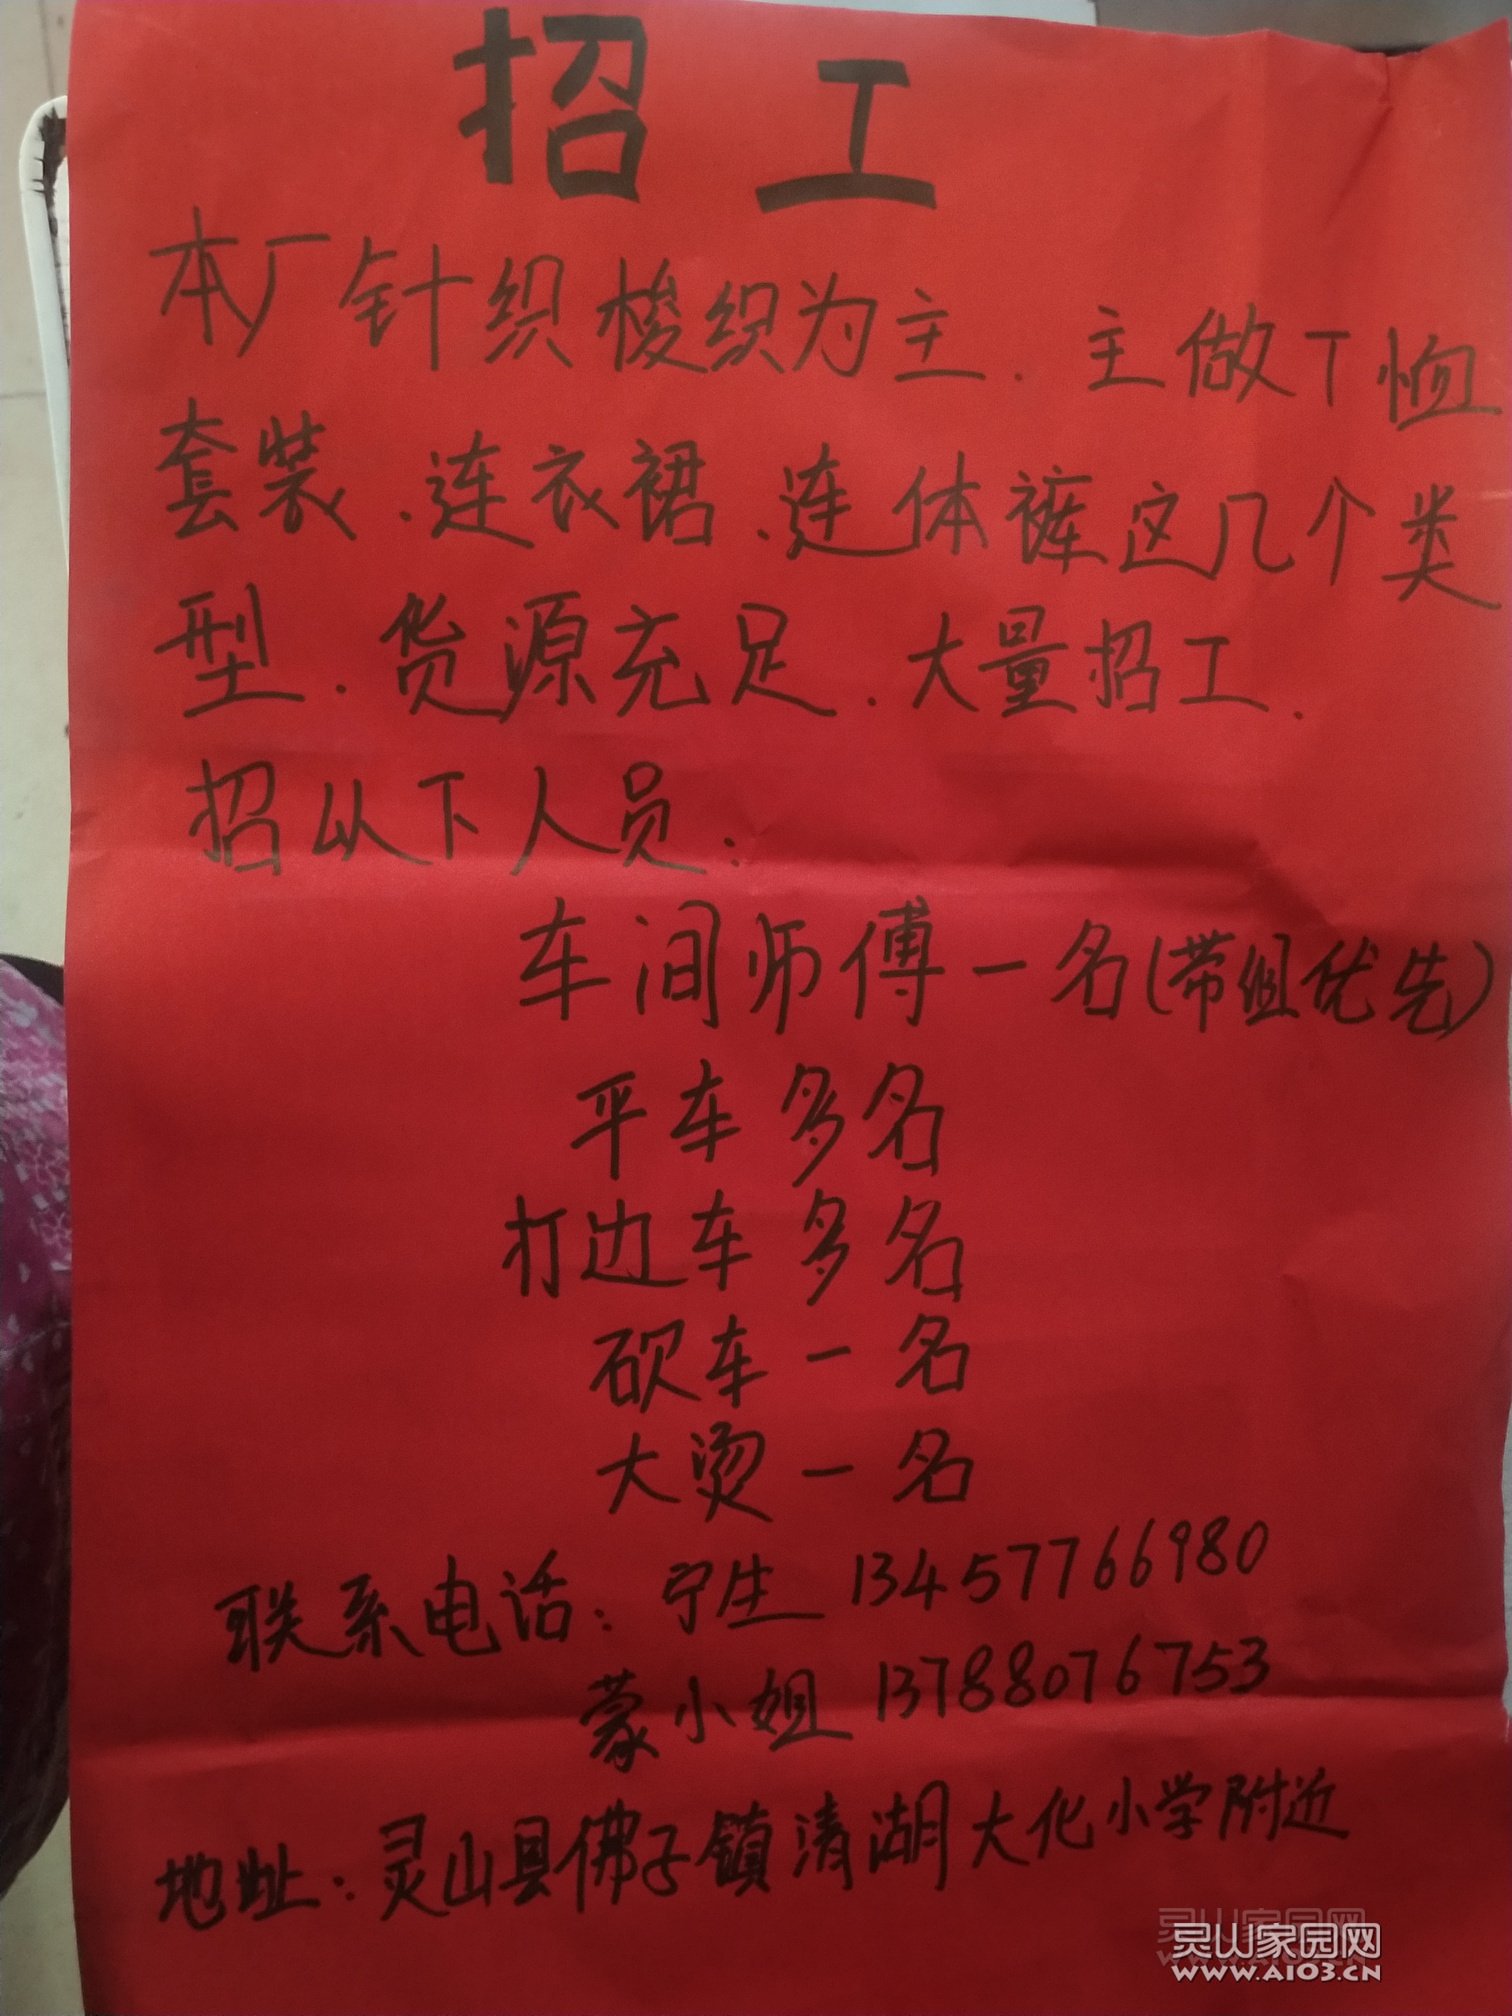 招工
本厂针织梭织为主.主做T恤
套装、连衣裙、连体裤这几个类
型.货源充足.大量招工.
招以下人员:
车间师傅一名(带组优先)
平车多名
打边车多名
砍车一名
大烫一名
联系电话:宁生 13457766980
蒙小姐 13788076753
地址:灵山县佛子镇清湖大化小学附近
灵山家园网
WWW.AI03.CN